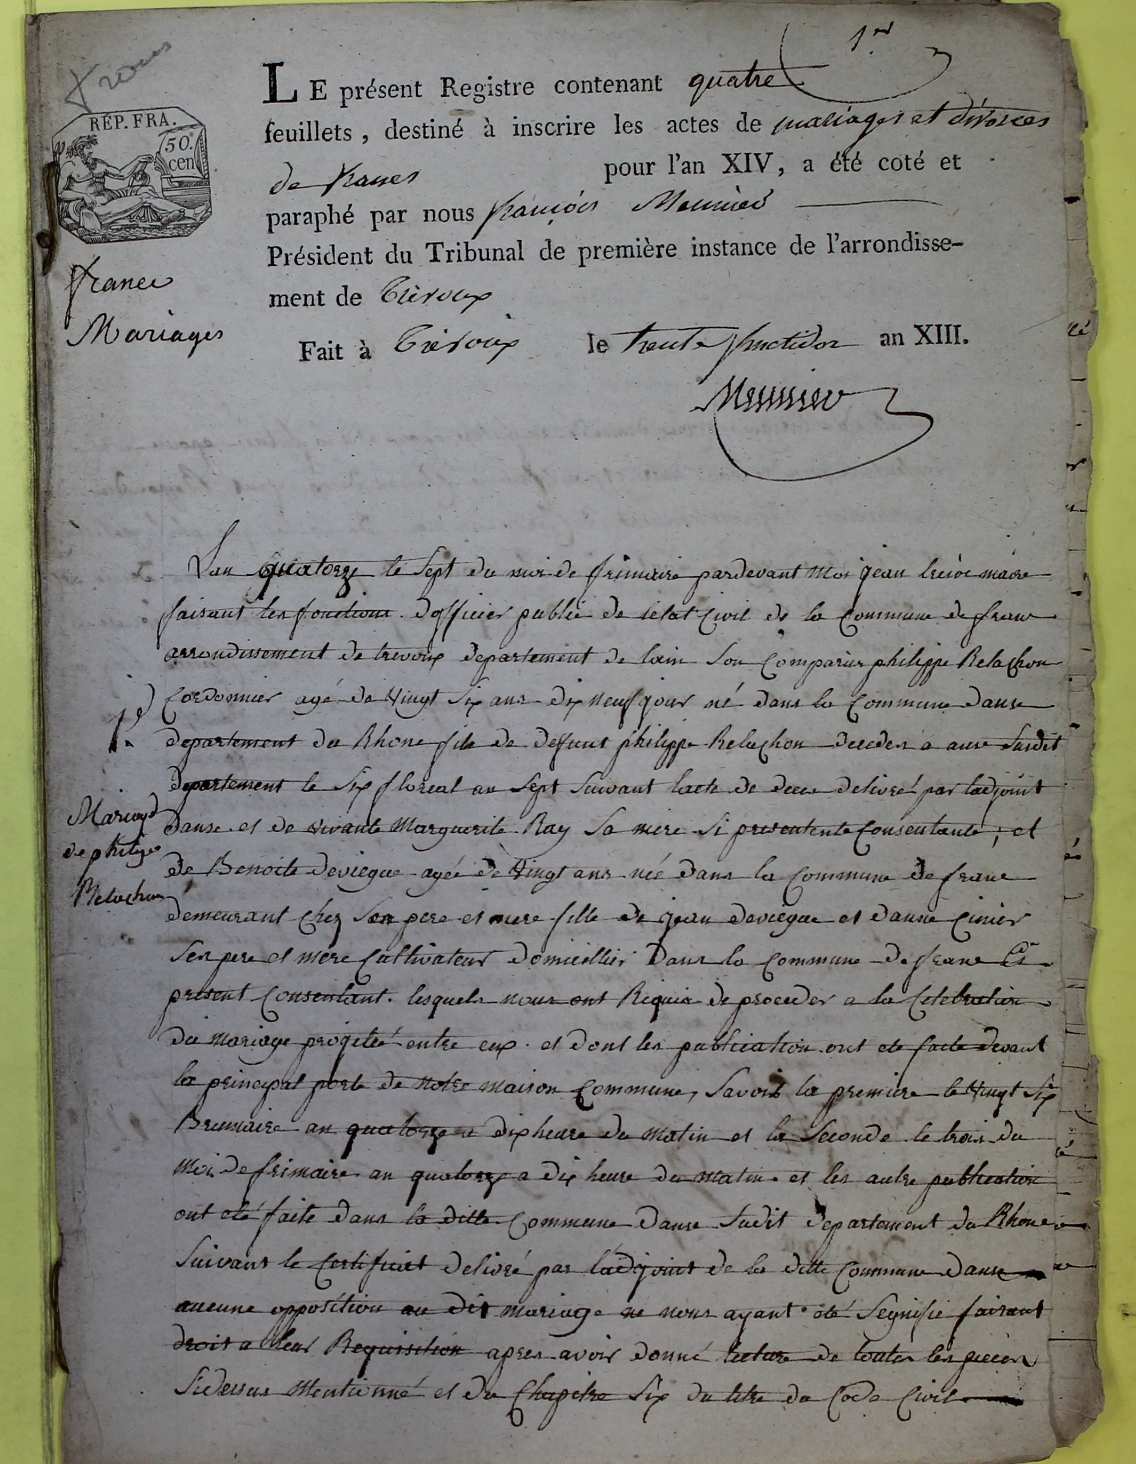 1er
Franes
RÉP. FRA.
50.
cen
LE présent Registre contenant quatre
feuillets, destiné à inscrire les actes de mariages et divorces
de franes pour l'an XIV, a été coté et
paraphé par nous françois Meunier
Président du Tribunal de première instance de l'arrondisse-
ment de Trévoux
Fait à Trévoux le trente fructidor an XIII.
Meunier
franes
Mariages
Lan quatorze le sept du moi de frimaire pardevant moi jean maire
faisant les fonctions dofficier publie de letat Civil de la Commune de frane
arrondissement de trevoux departement de lain son Comparus philippe Relachon
Cordonnier agé de vingt six ans dix neuf jour né dans la Commune danse
departement du Rhone fils de deffunt philippe Relachon deceder a anse susdit
departement le six floreal an sept suivant lacte de deces delivré par ladjoint
danse et de vivante Marguerite Ray sa mere si presentente Consentante; et
de Benoite deviegue agée de vingt ans née dans la Commune de frane
demeurant chez son pere et mere fille de jean deviegue et danne Cinier
ses pere et mere Cultivateur domicillier dans la Commune de frane Ci
present Consentant. lesquels nous ont Requis de proceder a la Celebration
du mariage projetté entre eux. et dont les publication ont eté faite devant
la principal porte de notre maison Commune, savoir la premiere le vingt six
Brumaire an quatorze a dix heure du matin et la seconde le trois du
moi de frimaire an quatorze a dix heure du matin. et les autre publication
ont eté faite dans la ditte Commune danse sudit departement du Rhone
suivant le Certificat delivré par ladjoint de la ditte Commune danse
aucune opposition au dit mariage ne nous ayant eté segnifié faisant
droit a leur Requisition apres avoir donné lecture de toutes les pieces
sidessus mentionné et du Chapitre six du titre du Code Civil
1er
Mariage
de philippe
Relachon